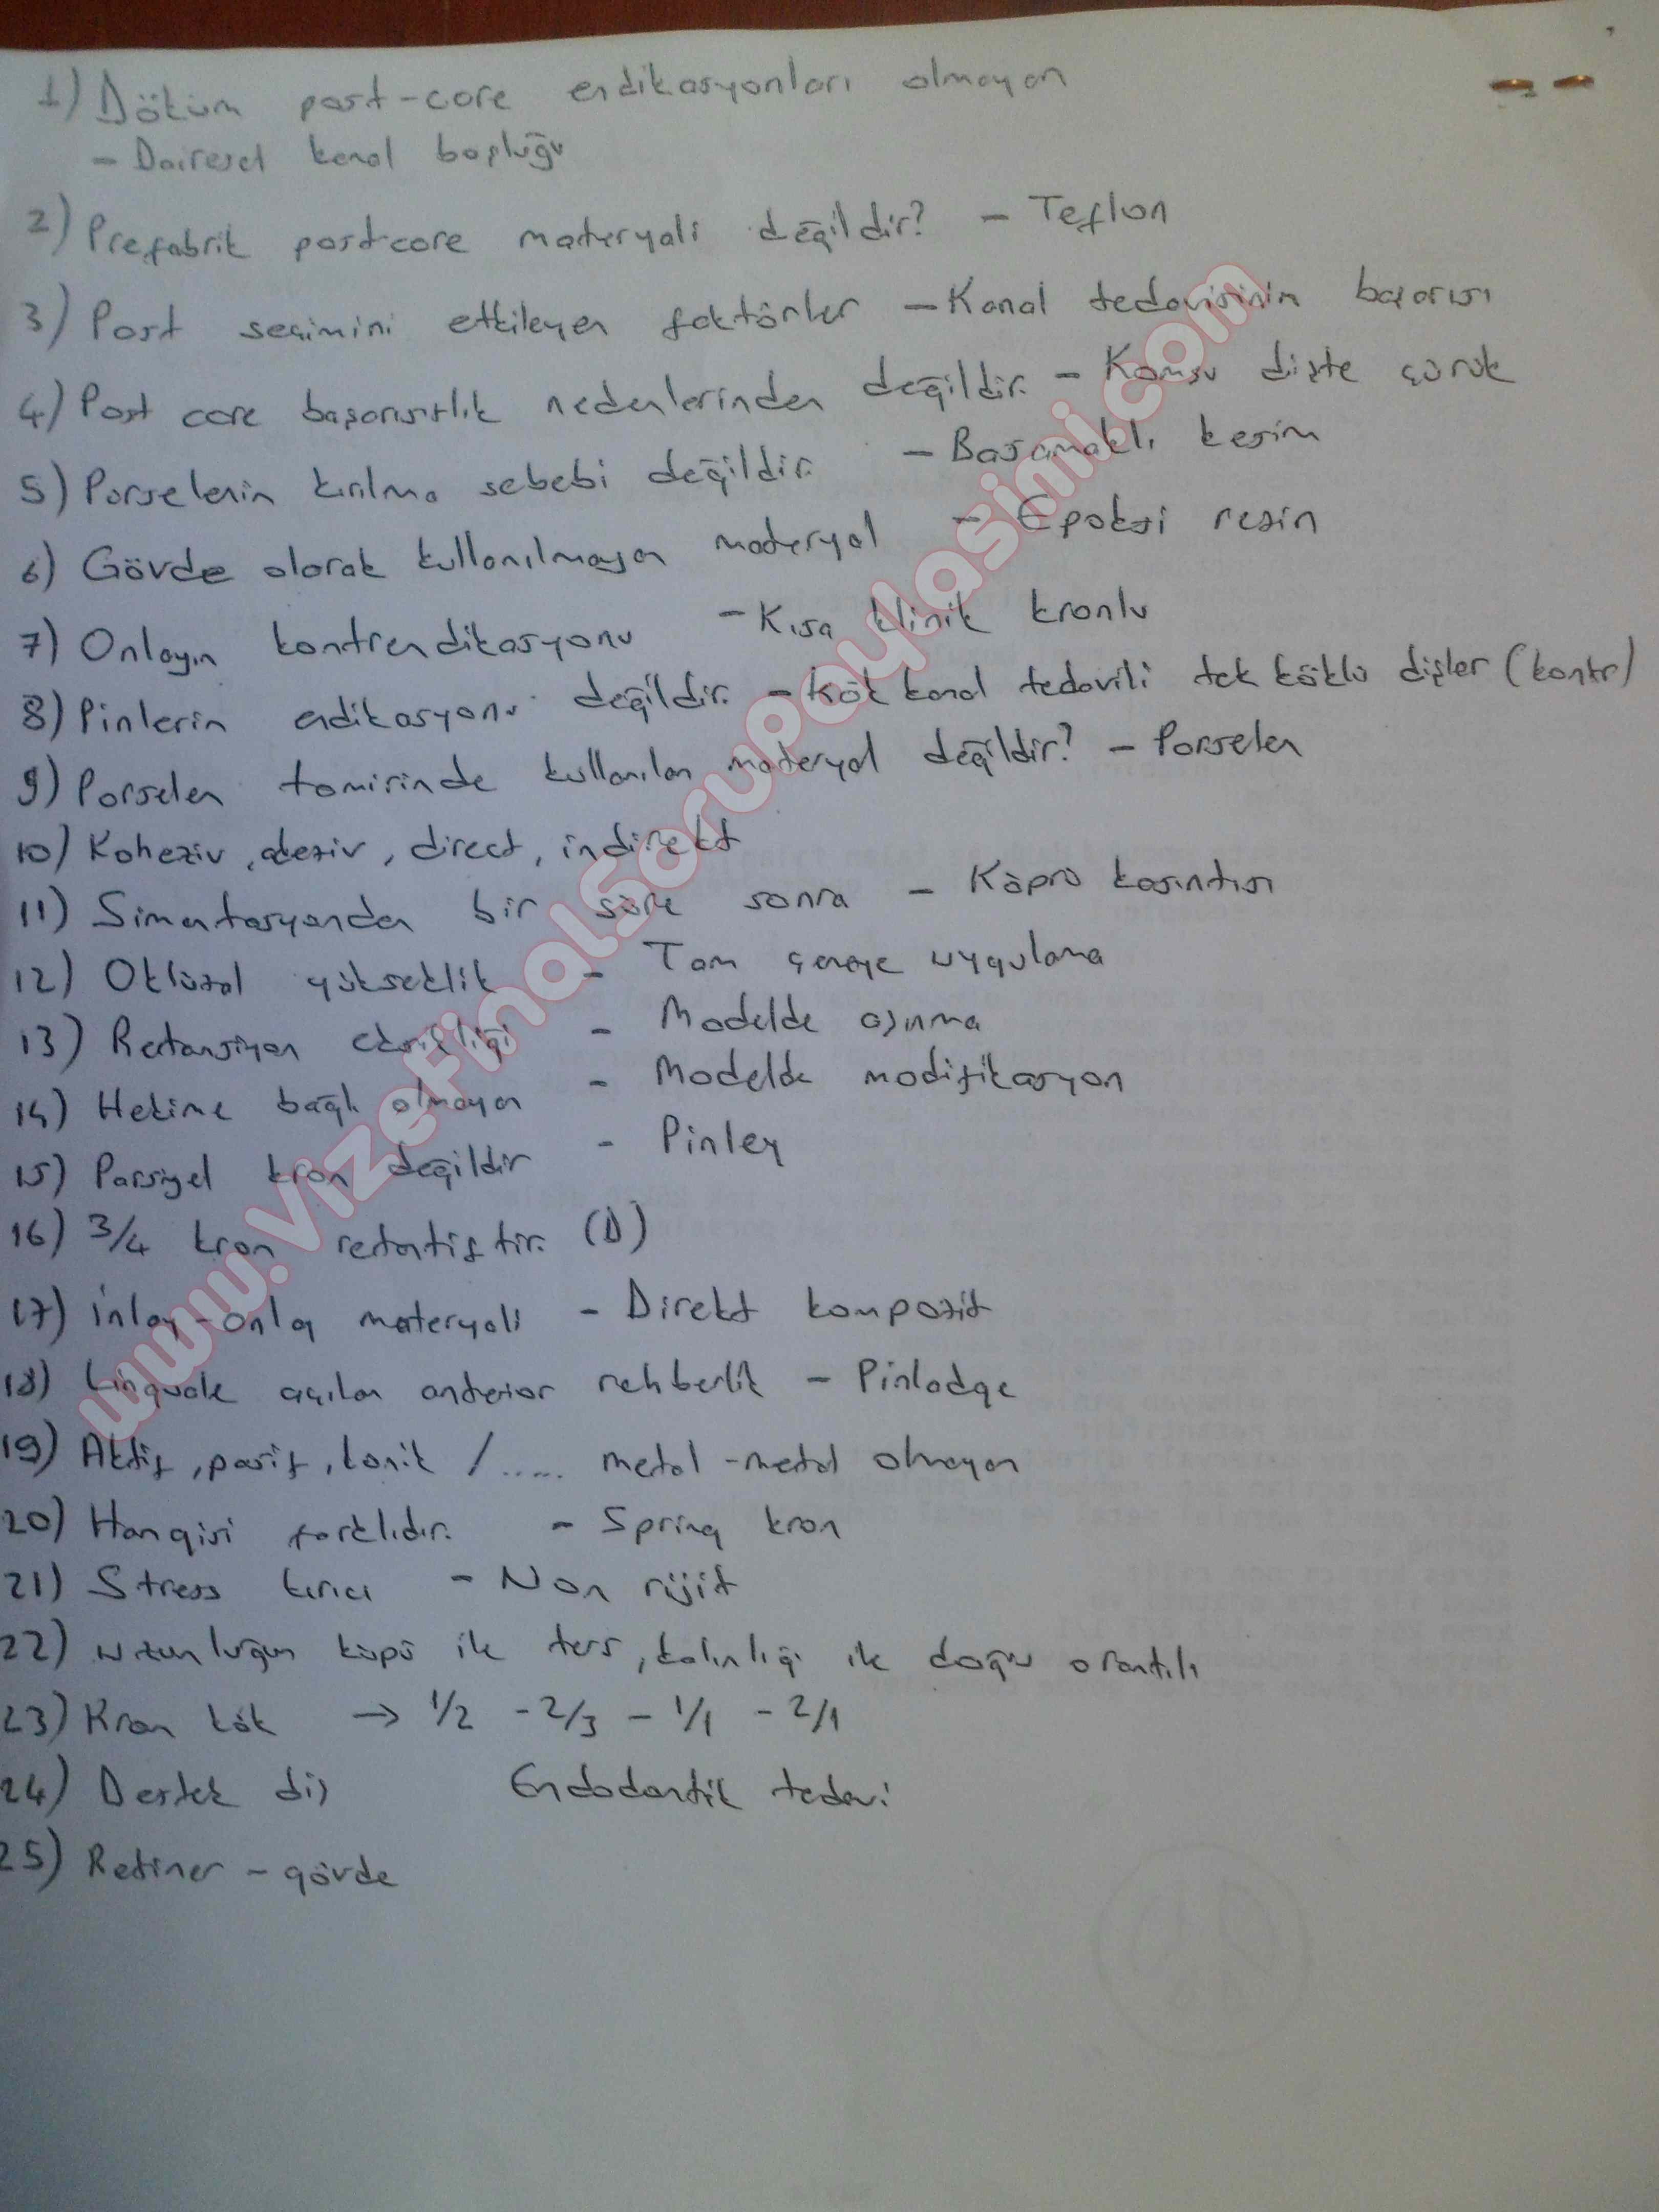 1) Döküm post-core endikasyonları olmayan
- Dairesel kanal boşluğu
2) Prefabrik postcore materyali değildir? - Teflon
3) Post seçimini etkileyen faktörler - Kanal tedavisinin başarısı
4) Post core başarısızlık nedenlerinden değildir. - Komşu dişte çürük
5) Porselenin kırılma sebebi değildir. - Basamaklı kesim
6) Gövde olarak kullanılmayan materyal - Epoksi resin
7) Onlayın kontrendikasyonu - Kısa klinik kronlu
8) Pinlerin endikasyonu değildir. - Kök kanal tedavili tek köklü dişler (kontr)
9) Porselen tamirinde kullanılan materyal değildir? - Porselen
10) Koheziv, adeziv, direct, indirekt
11) Simantasyondan bir süre sonra - Köprü kaşıntısı
12) Oklüzal yükseklik - Tam çeneye uygulama
13) Retansiyon eksikliği - Modelde aşınma
14) Hekime bağlı olmayan - Modelde modifikasyon
15) Parsiyel kron değildir - Pinley
16) 3/4 kron retantiftir. (D)
17) İnlay-onlay materyali - Direkt kompozit
18) Linguale açılan anterior rehberlik - Pinlodge
19) Aktif, pasif, konik / ..... metal-metal olmayan
20) Hangisi farklıdır. - Spring kron
21) Stress kırıcı - Non rijit
22) uzunluğun küpü ile ters, kalınlığı ile doğru orantılı
23) Kron kök → 1/2 - 2/3 - 1/1 - 2/1
24) Destek diş Endodontik tedavi
25) Retiner - gövde
www.VizeFinalSoruPaylasimi.com